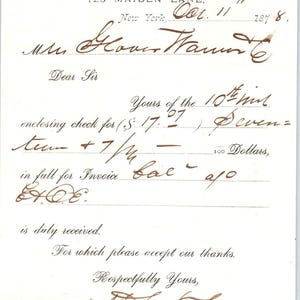 MAIDEN LANE,
New York, Oct. 11 1878.
Mess Glover
Dear Sir
Yours of the 10th inst.
enclosing check for ($ 17.07 ) Seven=
teen + 7/100 — 100 Dollars,
in full for Invoice Bal a/c
E&OE.
is duly received.
For which please accept our thanks.
Respectfully Yours,